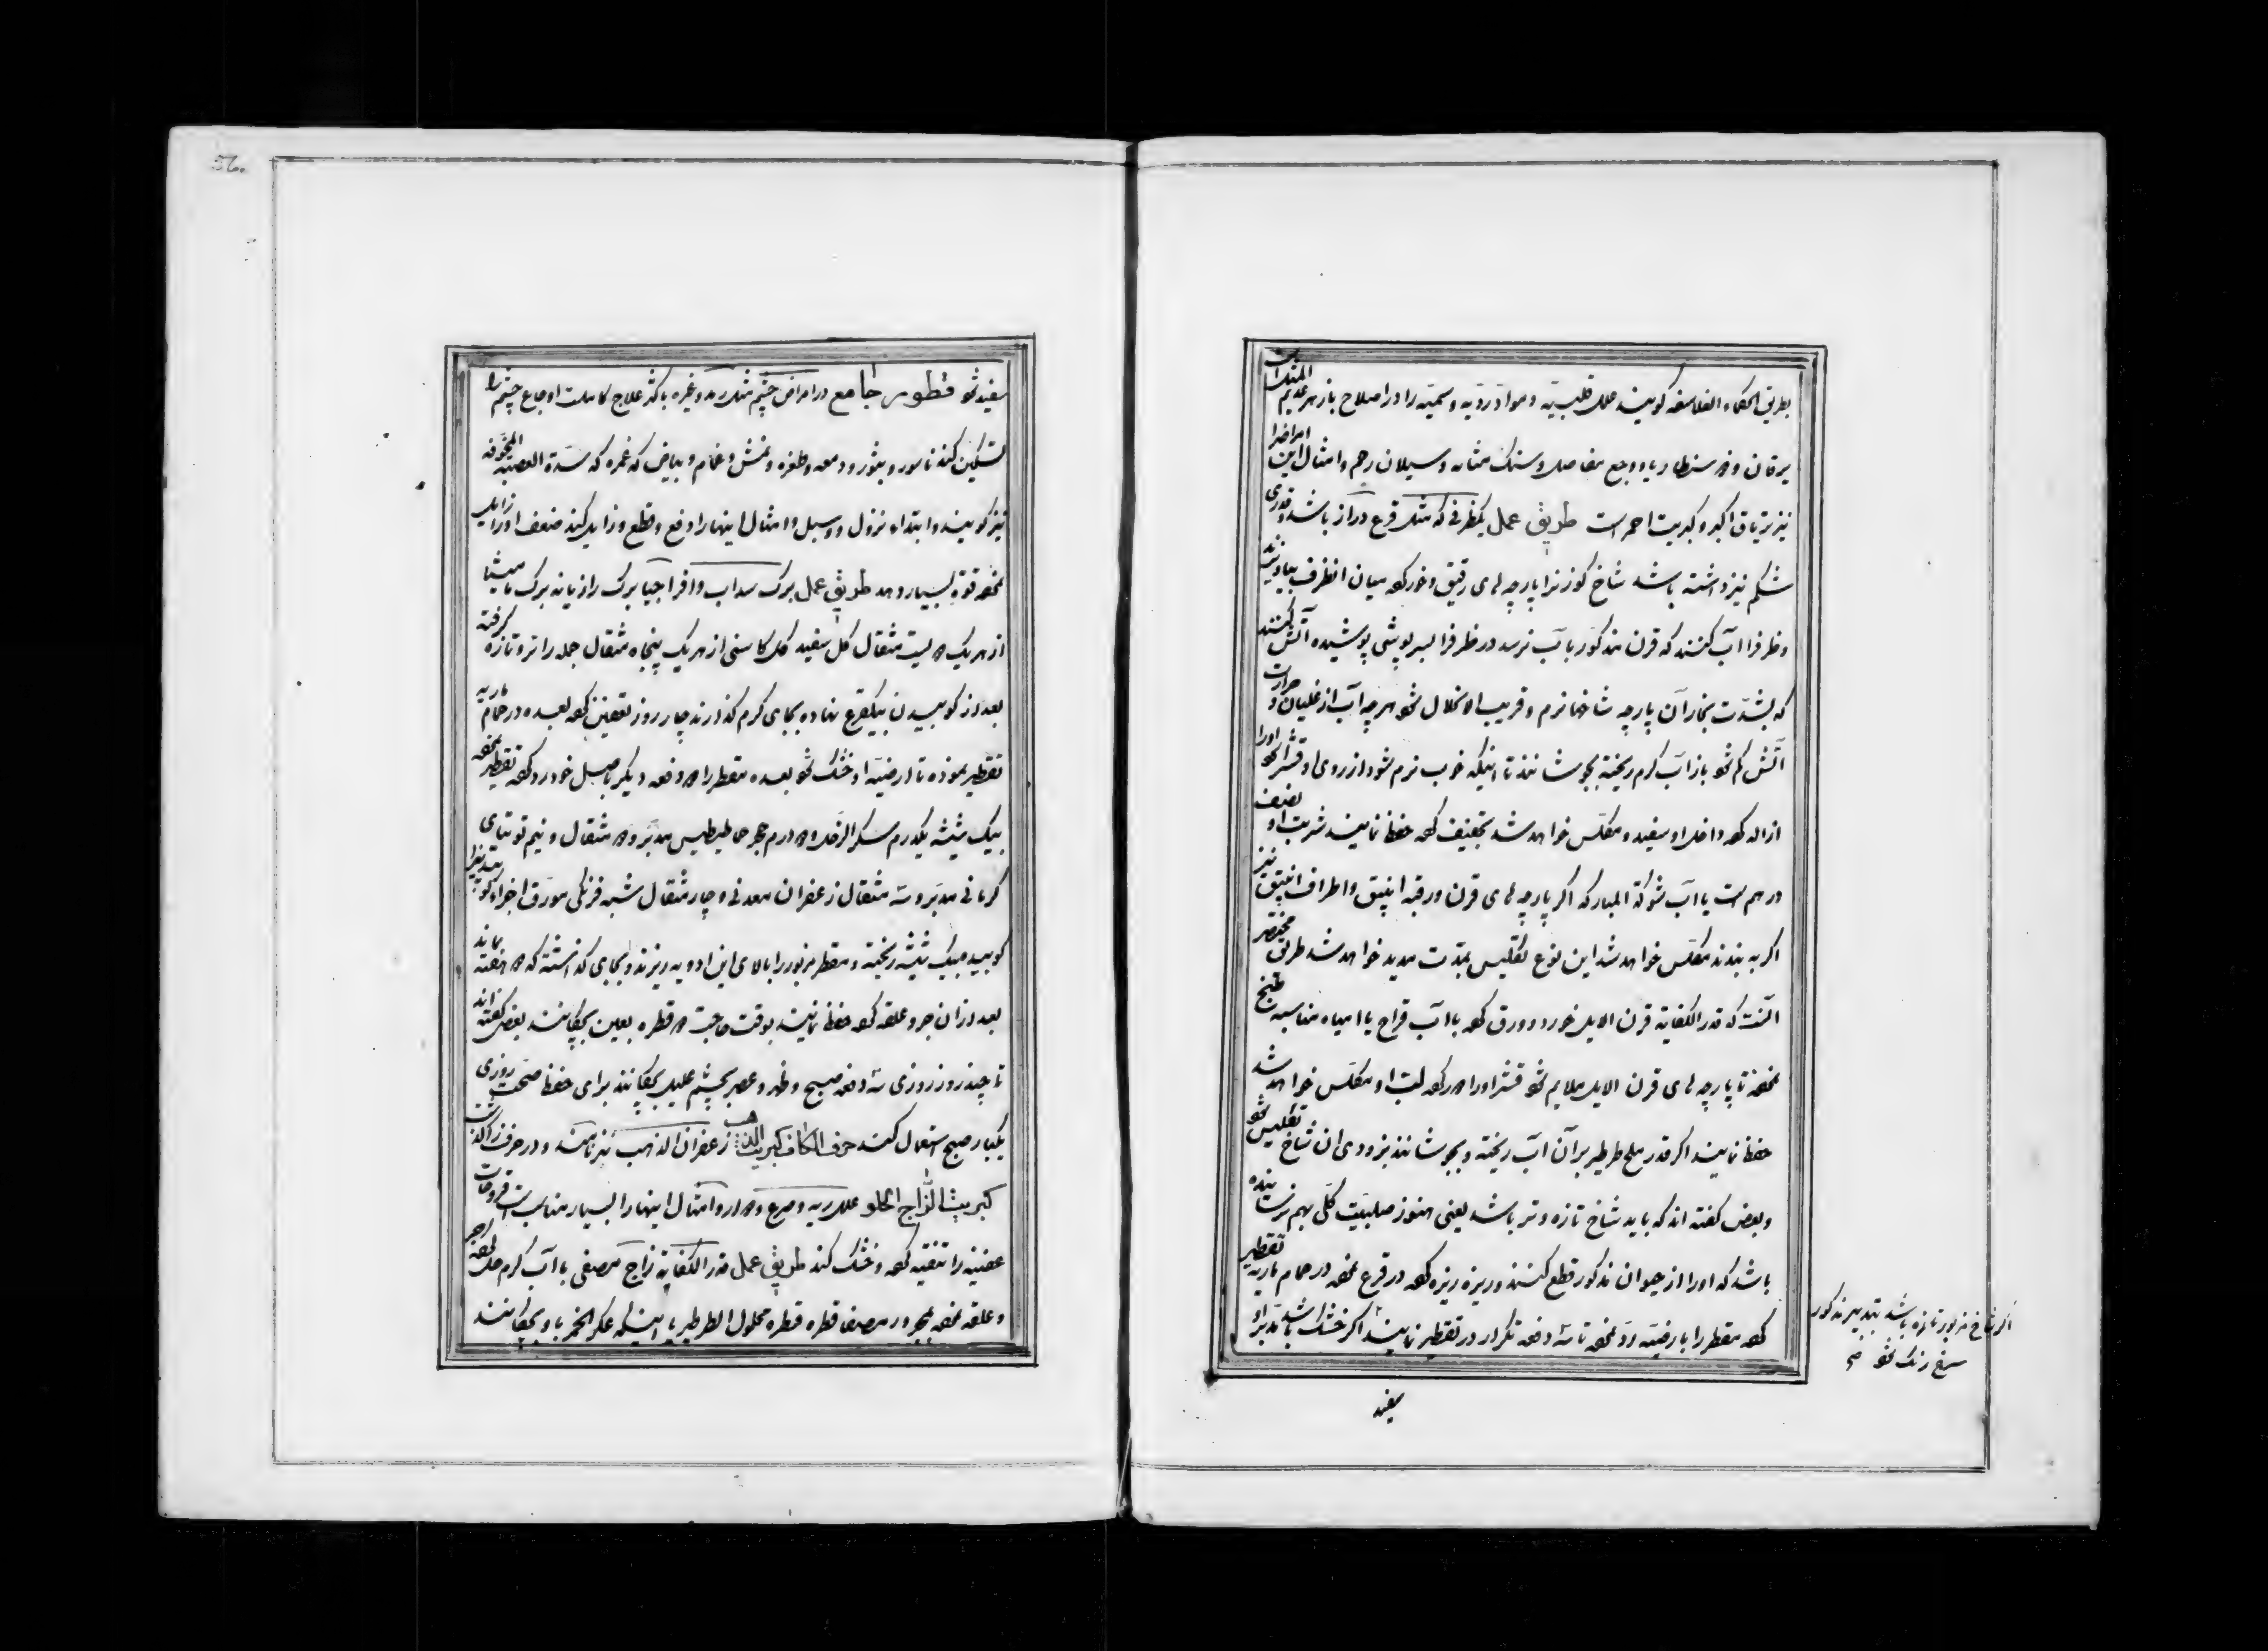 بطریق الحکماء الفلاسفه کویند علل قلبیّه و موادّ ردیّه و سمیّه را در اصلاح بازهر عدیم المثل است
یرقان و دسنطاریا و وجع مفاصل و سنک مثانه و سیلان رحم و امثال این امراضرا
نیز تریاق اکبر و کبریت احمر است طریق عمل یکظرفی که مثل قرع دراز باشد و قدری
شکم نیز داشته باشد شاخ کوزنرا پارچه های رقیق و خورد کرده میان انظرف بیاویزند
و ظرفرا آب کنند که قرن مذکور بآب نرسد در ظرفرا بسرپوشی پوشیده آتش کنند
که بشدّت بخار آن پارچه شاخها نرم و قریب الانحلال شود هر چه آب از غلیان و حرارت
آتش کم شود باز آب کرم ریخته بجوشانند تا اینکه خوب نرم شود از روی او قشر اورا
ازاله کرده داخل او سفید و مکلّس خواهد شد تجفیف کرده حفظ نمایند شربت او نصف
درهم است یا آب شوکة المبارکه اکر پارچه های قرن و رقبه انبیق و اطراف انبیق نیز
اکر به بندند مکلّس خواهد شد این نوع تکلیس بمدّت مدید خواهد شد طریق مختصر
آنست که قدر الکفایة قرن الایل خورد و ورق کرده با آب قراح یا امیاه مناسبه طبخ
نموده تا پارچه های قرن الایل ملایم شود قشر اورا دور کرده لبّ او مکلّس خواهد شد
حفظ نمایند اکر قدر ملح طرطیر بر آن آب ریخته و بجوشانند بزودی ان شاخ تکلیس شود
و بعض کفته اند که باید شاخ تازه و تر باشد یعنی هنوز صلبیّت کلّی بهم نرسانیده
باشد که اورا از حیوان مذکور قطع کنند و ریزه ریزه کرده در قرع نموده در حمام ماریه تقطیر
کرده مقطر را بارضیّه ردّ نموده تا سه دفعه تکرار در تقطیر نمایند اکر خشک باشد بتدبیر او
اکر شاخ مزبور تازه باشد بتدبیر مذکور
سرخ رنک شود صح
سفید
سفید شود قطور جامع در امراض چشم مثل رمد و غیره باکثر علاج کاملست اوجاع چشم را
تسکین کند ناسور و بثور و دمعه و ظفره و نمش و غمام و بیاض که غمره که سدّة العصبه المجوّفه
نیز کویند و ابتداء نزول و سبل و امثال اینهارا دفع و قطع و زایل کند ضعف اورا زایل
نموده قوّة بسیار دهد طریق عمل برک سداب و افراجیا برک رازیانه برک مامیثا
از هر یک دو لیست مثقال کل سفید کل کاسنی از هر یک پنجاه مثقال جمله را تر و تازه کرفته
بعد از کوبیدن بیکقرع نهاده بجای کرم کذارند چار روز تعفین کرده بعده در حمام ماریه
تقطیر نموده تا ارضیّه او خشک شود بعده مقطر را دو دفعه دیکر باصل خود رد کرده تقطیر نموده
بیک شیشه یکدرم سکر الزحل و دو درم حجر حماطیطس مدبّر دو مثقال و نیم توتیای
کرمانی مدبّر و سه مثقال زعفران معدنی و چار مثقال شبه فرنکی مورّق اجزاء کوبیدنیرا
کوبیده بیک شیشه ریخته و مقطر مزبور را بالای این ادویه ریزند و بجای کذاشته که دو هفته بماند
بعد از ان جر و علقه کرده حفظ نمایند بوقت حاجت دو قطره بعین بچکانند بعض کفته اند
تا چند روز روزی سه دفعه صبح و ظهر و عصر بچشم علیل بچکانند برای حفظ صحّت روزی
یکبار صبح استعمال کنند حرف الکاف کبریت الذهب زعفران الذهب نیز نامند و در حرف زا کذشت
کبریت الزاج الحلو علل ریه و صرع و دوار و امثال اینهارا بسیار مناسبست قروحات
عفنیه را تنقیه کرده و خشک کند طریق عمل قدر الکفایة زاج مصفی با آب کرم حل نموده جر
و علقه نموده بمجرور مصفا قطره قطره محلول الطرطیر یا اینکه عکر الخمر باو بچکانند